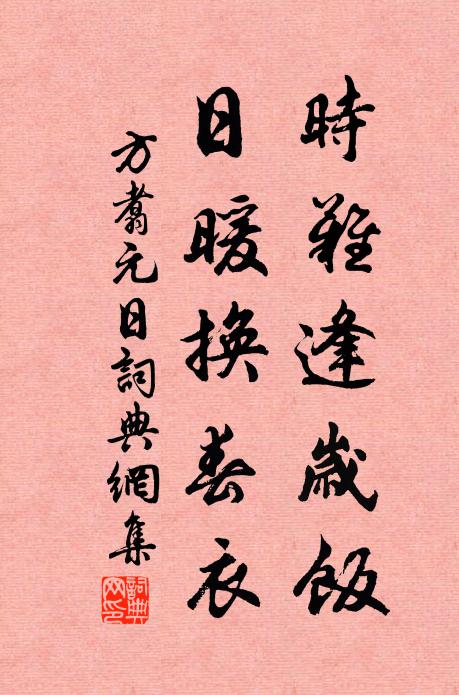 時難逢歲飯
日暖換春衣
方翥元日詞典網集
詞典網印